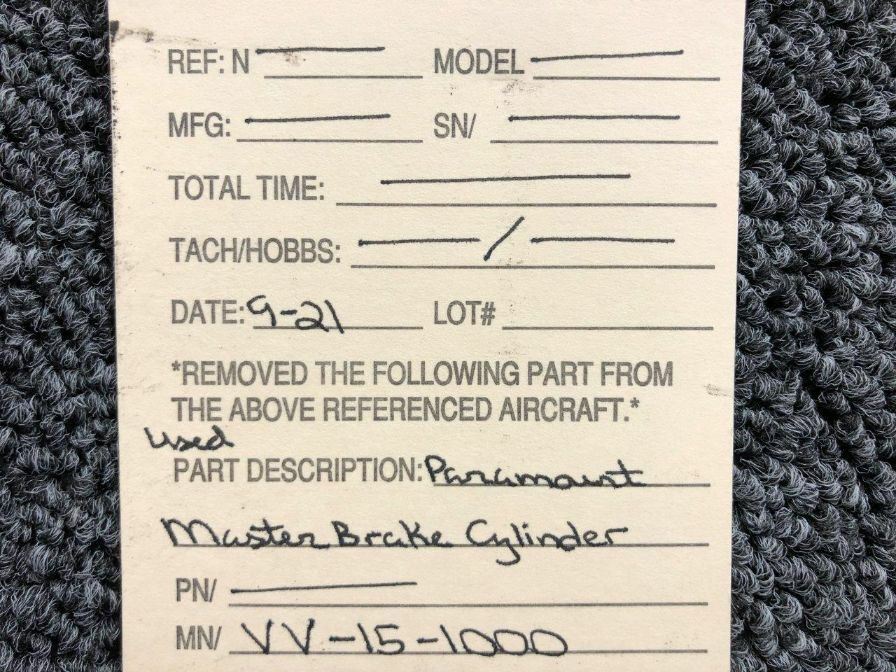 REF: N MODEL
MFG: SN/
TOTAL TIME:
TACH/HOBBS: /
DATE: 9-21 LOT#
*REMOVED THE FOLLOWING PART FROM
THE ABOVE REFERENCED AIRCRAFT.*
used
PART DESCRIPTION: Paramount
Master Brake Cylinder
PN/
MN/ VV-15-1000